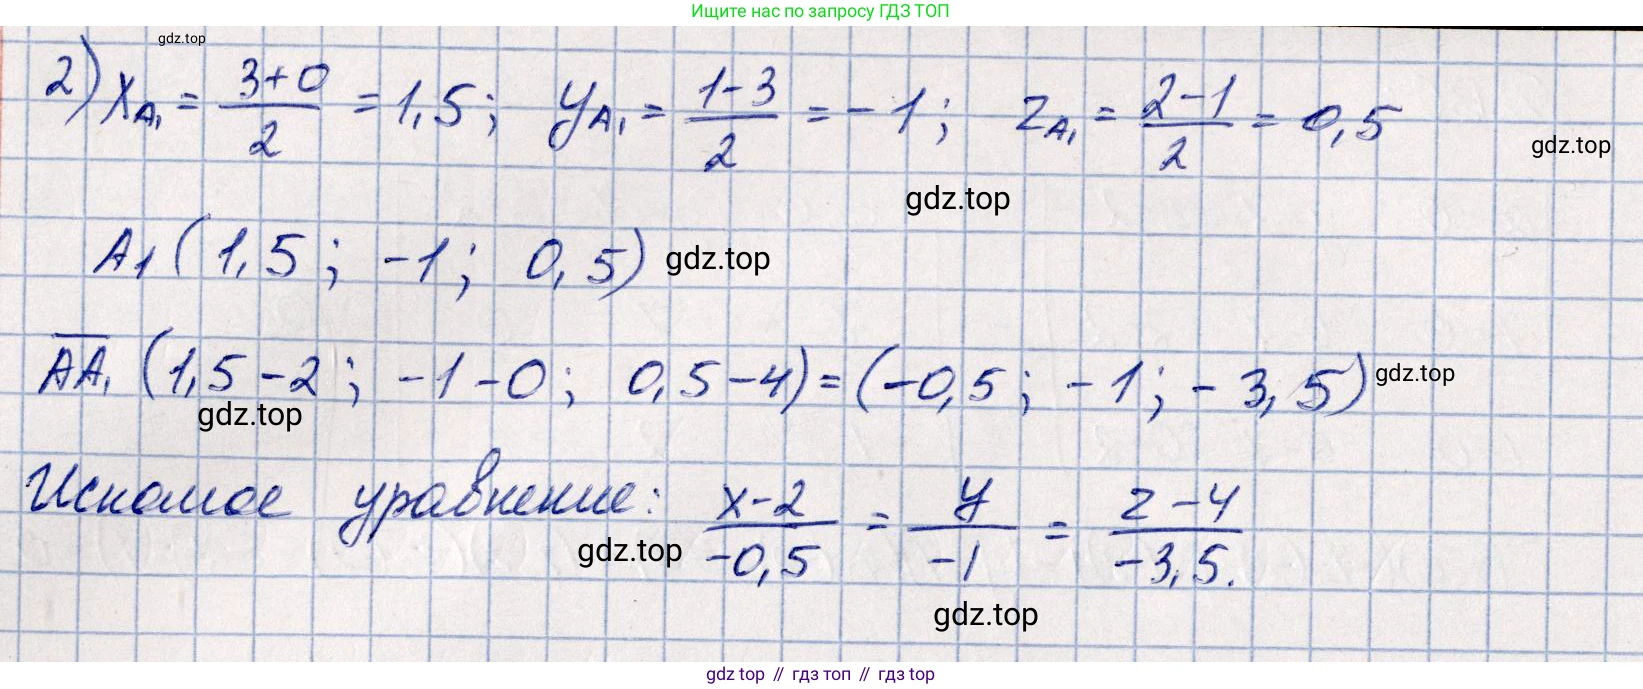 Ищите нас по запросу ГДЗ ТОП
gdz.top
2) x_A₁ = (3+0)/2 = 1,5; y_A₁ = (1-3)/2 = -1; z_A₁ = (2-1)/2 = 0,5
gdz.top
gdz.top
A₁ (1,5; -1; 0,5) gdz.top
AA₁ (1,5-2; -1-0; 0,5-4) = (-0,5; -1; -3,5) gdz.top
gdz.top
Искомое уравнение: (x-2)/(-0,5) = y/(-1) = (z-4)/(-3,5).
gdz.top
gdz.top
gdz top // гдз топ // гдз top